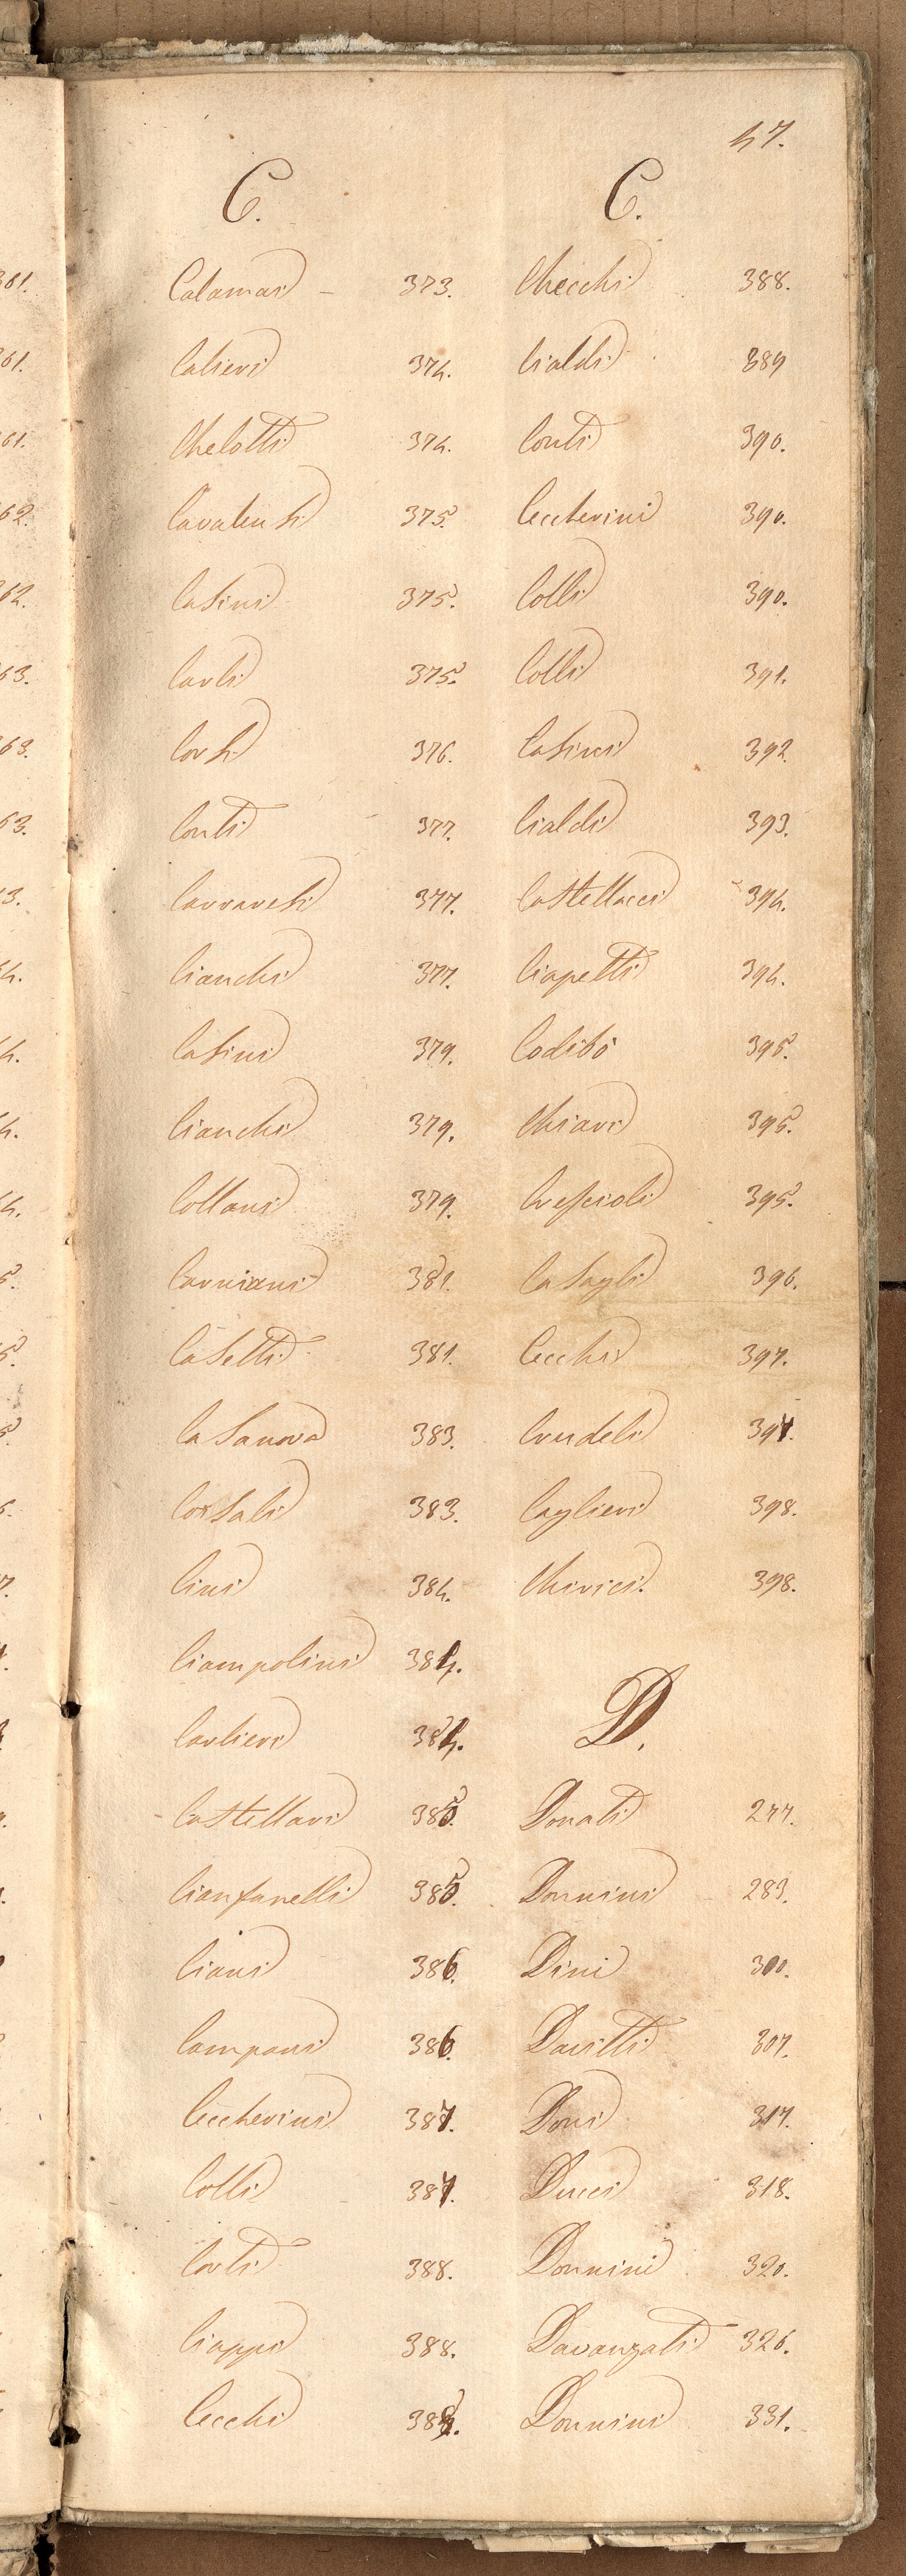 47.
C.
Calamai - 373.
Calieri 374.
Chelotti 374.
Cavalensi 375.
Casini 375.
Carli 375.
Corsi 376.
Conti 377.
Carraresi 377.
Cianchi 377.
Casini 379.
Cianchi 379.
Collani 379.
Carniani 381.
Casetti 381.
Casanova 383.
Corsali 383.
Cini 384.
Ciampolini 384.
Carlieri 384.
Castellari 385.
Cianfanelli 385.
Ciani 386.
Campani 386.
Ceccherini 387.
Colli 387.
Corti 388.
Ciappi 388.
Cecchi
C.
Checchi 388.
Cialdi 389
Conti 390.
Ceccherini 390.
Colli 390.
Colli 391.
Casini 392.
Cialdi 393.
Castellacci 394.
Ciapetti 394.
Codibò 395.
Chiari 395.
Crescioli 395.
Casagli 396.
Cecchi 397.
Crudeli 397.
Caglieri 398.
Chirici. 398.
D.
Donati 277.
Donnini 283.
Dini 300.
Davitti 307.
Doni 317.
Ducci 318.
Donnini 320.
Davanzati 326.
Donnini 331.